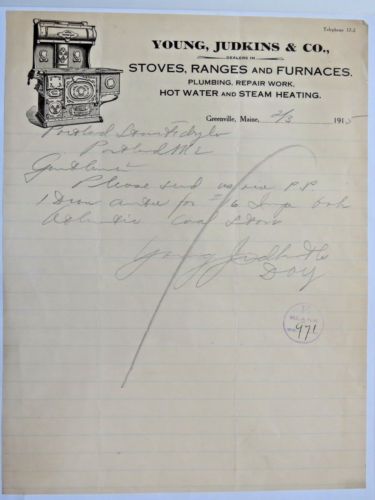 Telephone 12-2
YOUNG, JUDKINS & CO.,
DEALERS IN
STOVES, RANGES AND FURNACES.
PLUMBING, REPAIR WORK,
HOT WATER AND STEAM HEATING.
Greenville, Maine, 2/3 1915
Portland Stove Fdy Co
Portland Me
Gentlemen
Please send us via P.P.
1 Door for #6 Imp Oak
Atlantic Coal Stove
Young Judkins Co
DOY
971